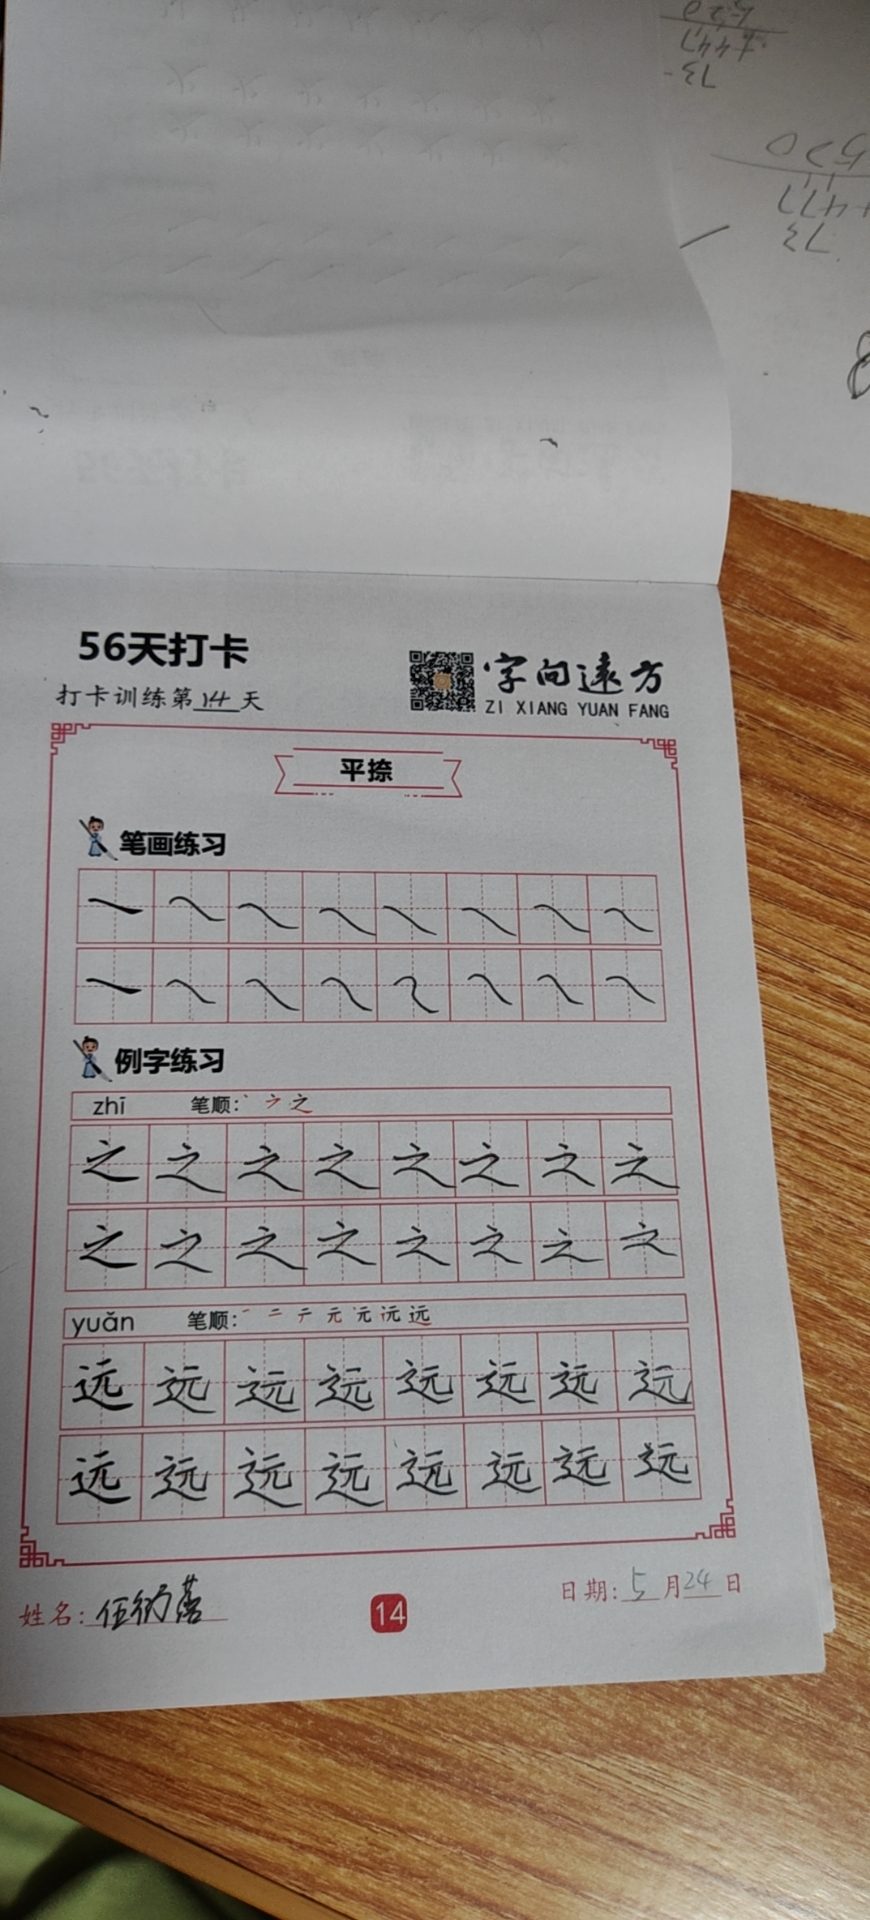 56天打卡
打卡训练第14天
字向远方
ZI XIANG YUAN FANG
平捺
笔画练习
例字练习
zhī 笔顺: 丶 ㇇ 之
之 之 之 之 之 之 之 之
之 之 之 之 之 之 之 之
yuǎn 笔顺: 一 二 テ 元 元 沅 远
远 远 远 远 远 远 远 远
远 远 远 远 远 远 远 远
姓名:
14
日期: 5月24日
73
+447
520
73
+477
520
8